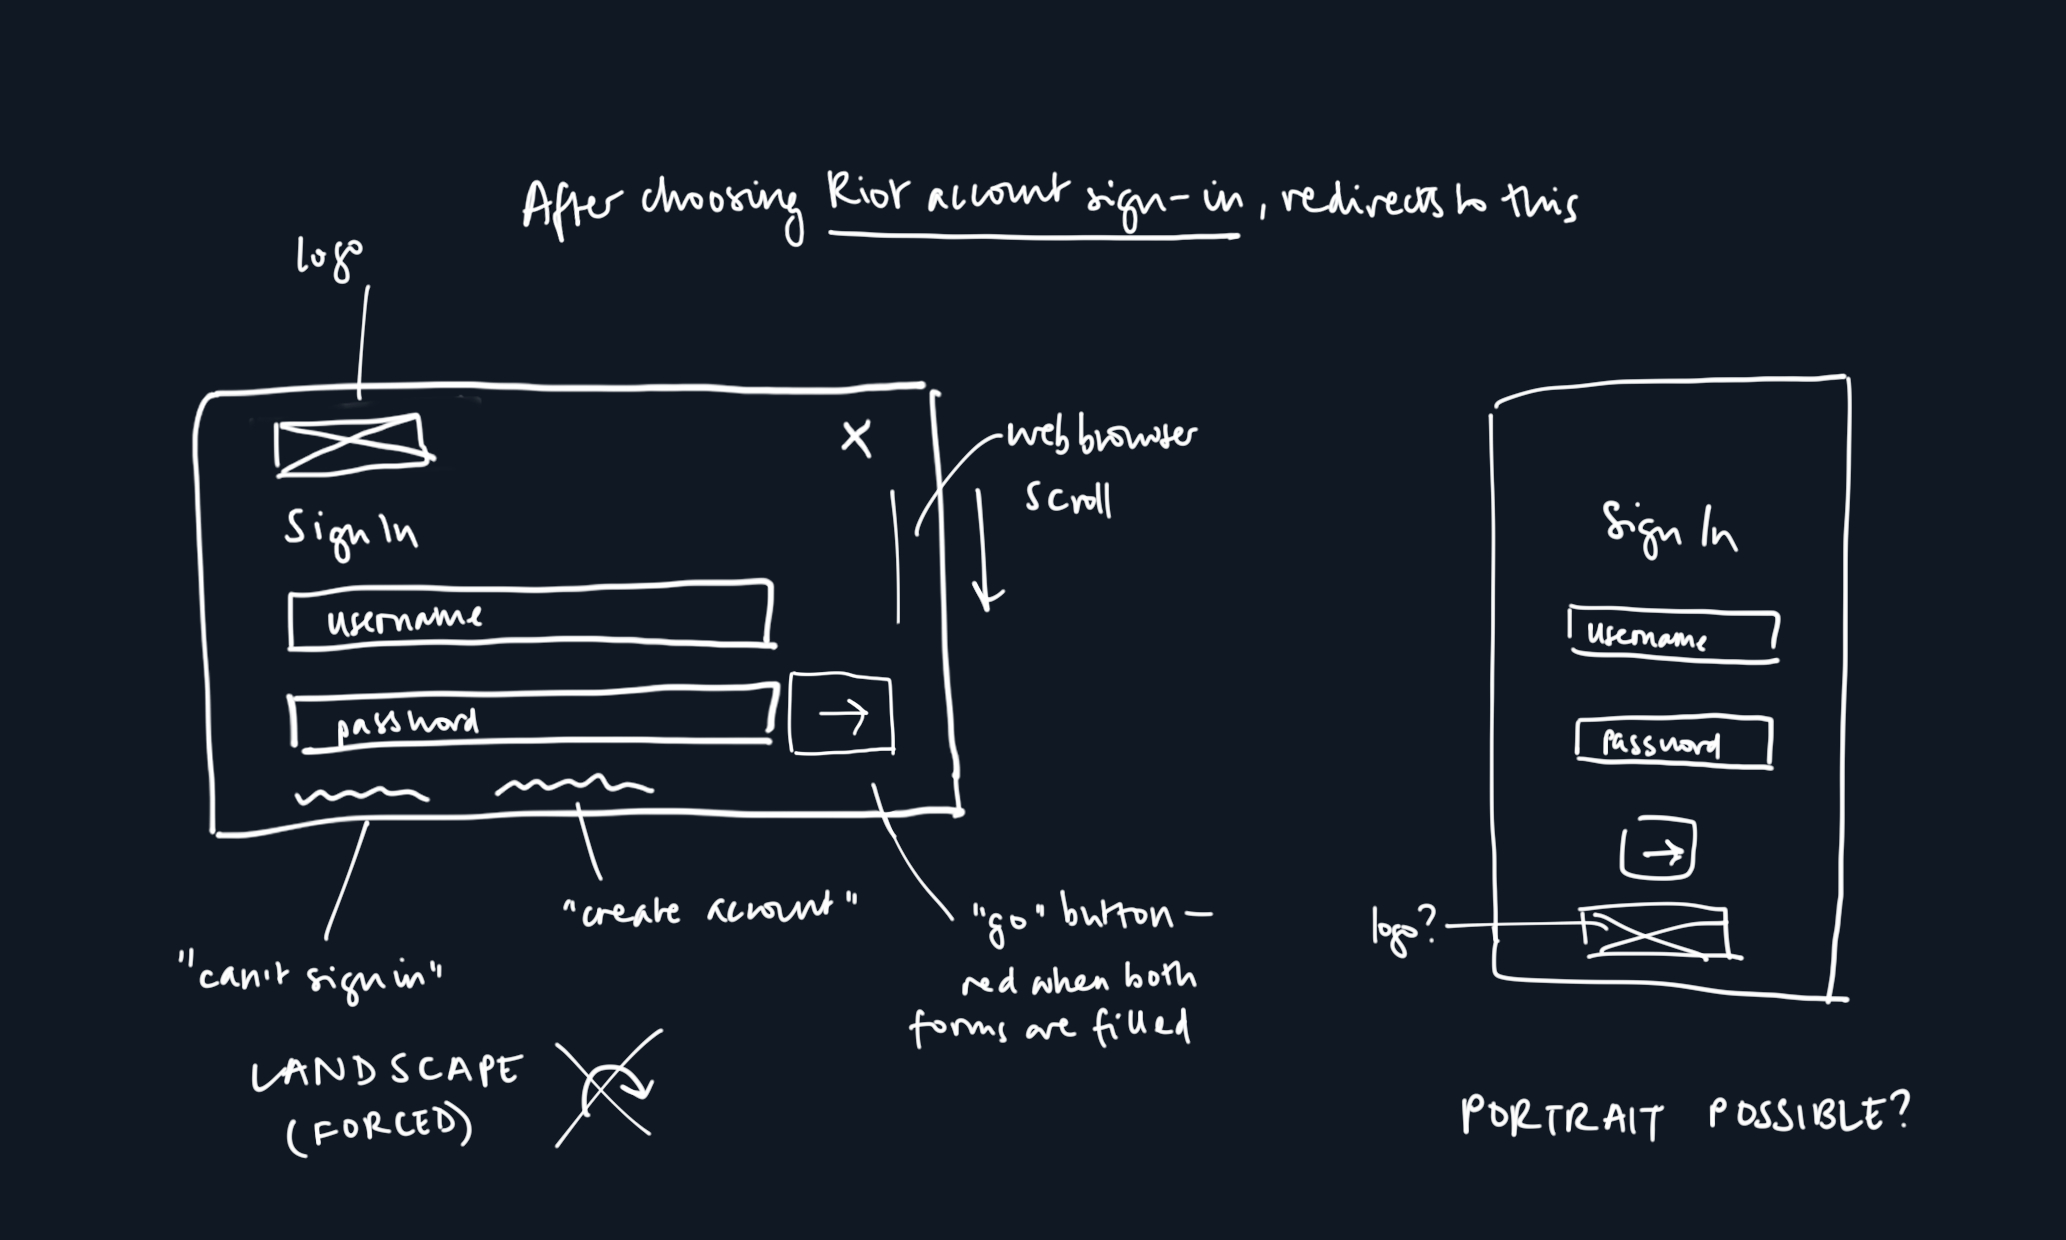 After choosing Riot account sign-in, redirects to this
logo
X
Sign In
username
password
→
web browser
scroll
"can't sign in"
"create account"
"go" button —
red when both
forms are filled
LANDSCAPE
(FORCED)
Sign In
username
password
→
logo?
PORTRAIT POSSIBLE?